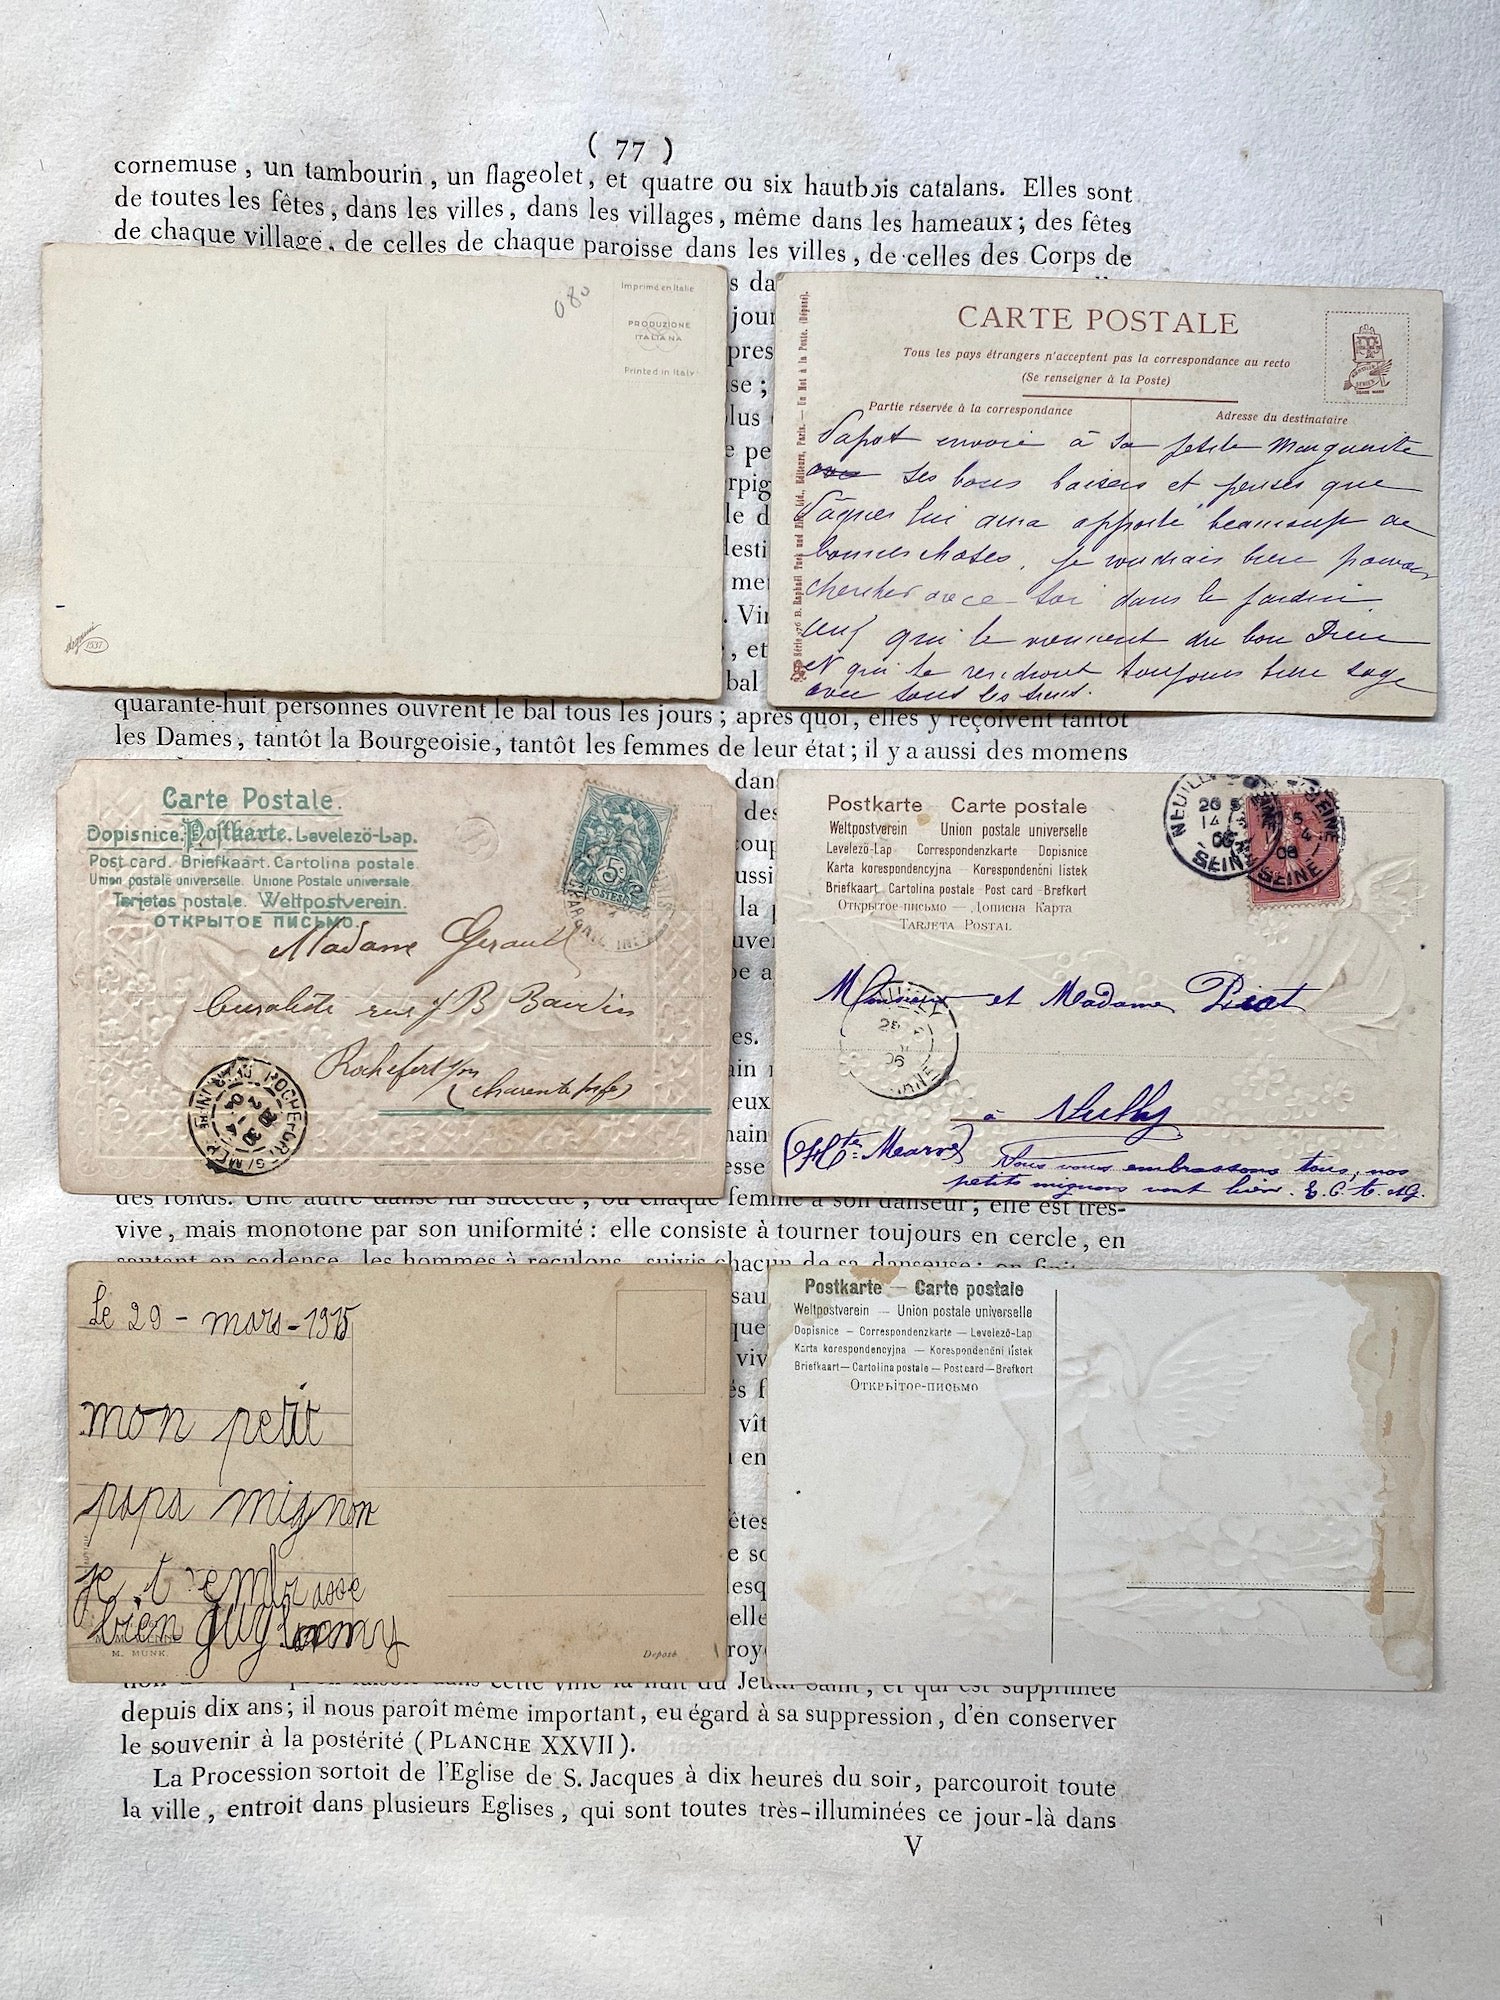 ( 77 )
cornemuse, un tambourin, un flageolet, et quatre ou six hautbois catalans. Elles sont
de toutes les fêtes, dans les villes, dans les villages, même dans les hameaux; des fêtes
de chaque village, de celles de chaque paroisse dans les villes, de celles des Corps de
080
Imprimé en Italie
PRODUZIONE
ITALIANA
Printed in Italy
1537
CARTE POSTALE
Tous les pays étrangers n'acceptent pas la correspondance au recto
(Se renseigner à la Poste)
Partie réservée à la correspondance
Adresse du destinataire
envoie à sa petite Marguerite
ses bons baisers et penses que
Pâques lui aura apporté beaucoup de
bonnes choses. Je voudrais bien pouvoir
chercher avec toi dans le jardin
qui te viennent du bon Dieu
et qui te rendront toujours bien sage
avec tous les tiens.
Série 76 B. Raphaël Tuck und Fils, Ltd., Editeurs, Paris. — Un Mot à la Poste. (Déposé).
quarante-huit personnes ouvrent le bal tous les jours; après quoi, elles y reçoivent tantôt
les Dames, tantôt la Bourgeoisie, tantôt les femmes de leur état; il y a aussi des momens
Carte Postale.
Dopisnice. Postkarte. Levelezö-Lap.
Post card. Briefkaart. Cartolina postale.
Union postale universelle. Unione Postale universale.
Tarjetas postale. Weltpostverein.
ОТКРЫТОЕ ПИСЬМО.
5c
POSTES
Madame Gerault
rue J B Baudin
Rochefort s/m
(Charente Infre)
ROCHEFORT S/MER
Postkarte Carte postale
Weltpostverein Union postale universelle
Levelezö-Lap Correspondenzkarte Dopisnice
Karta korespondencyjna Korespondenční lístek
Briefkaart Cartolina postale Post card Brefkort
Открытое-письмо — Дописна Карта
TARJETA POSTAL
NEUILLY
SEINE
Monsieur et Madame Piat
à Neuilly
Nous vous embrassons tous, nos
petits mignons vont bien.
des fonds. Une autre danse lui succède, où chaque femme a son danseur; elle est très-
vive, mais monotone par son uniformité: elle consiste à tourner toujours en cercle, en
sautant en cadence, les hommes à reculons, suivis chacun de sa danseuse; on
Le 29 - mars - 1915
mon petit
papa mignon
je t'embrasse
bien
M. MUNK.
Deposé
Postkarte — Carte postale
Weltpostverein — Union postale universelle
Dopisnice — Correspondenzkarte — Levelezö-Lap
Karta korespondencyjna — Korespondenční lístek
Briefkaart — Cartolina postale — Post card — Brefkort
Открытое-письмо
cette ville la nuit du Jeudi-Saint, et qui est supprimée
depuis dix ans; il nous paroît même important, eu égard à sa suppression, d'en conserver
le souvenir à la postérité (PLANCHE XXVII).
La Procession sortoit de l'Eglise de S. Jacques à dix heures du soir, parcouroit toute
la ville, entroit dans plusieurs Eglises, qui sont toutes très-illuminées ce jour-là dans
V